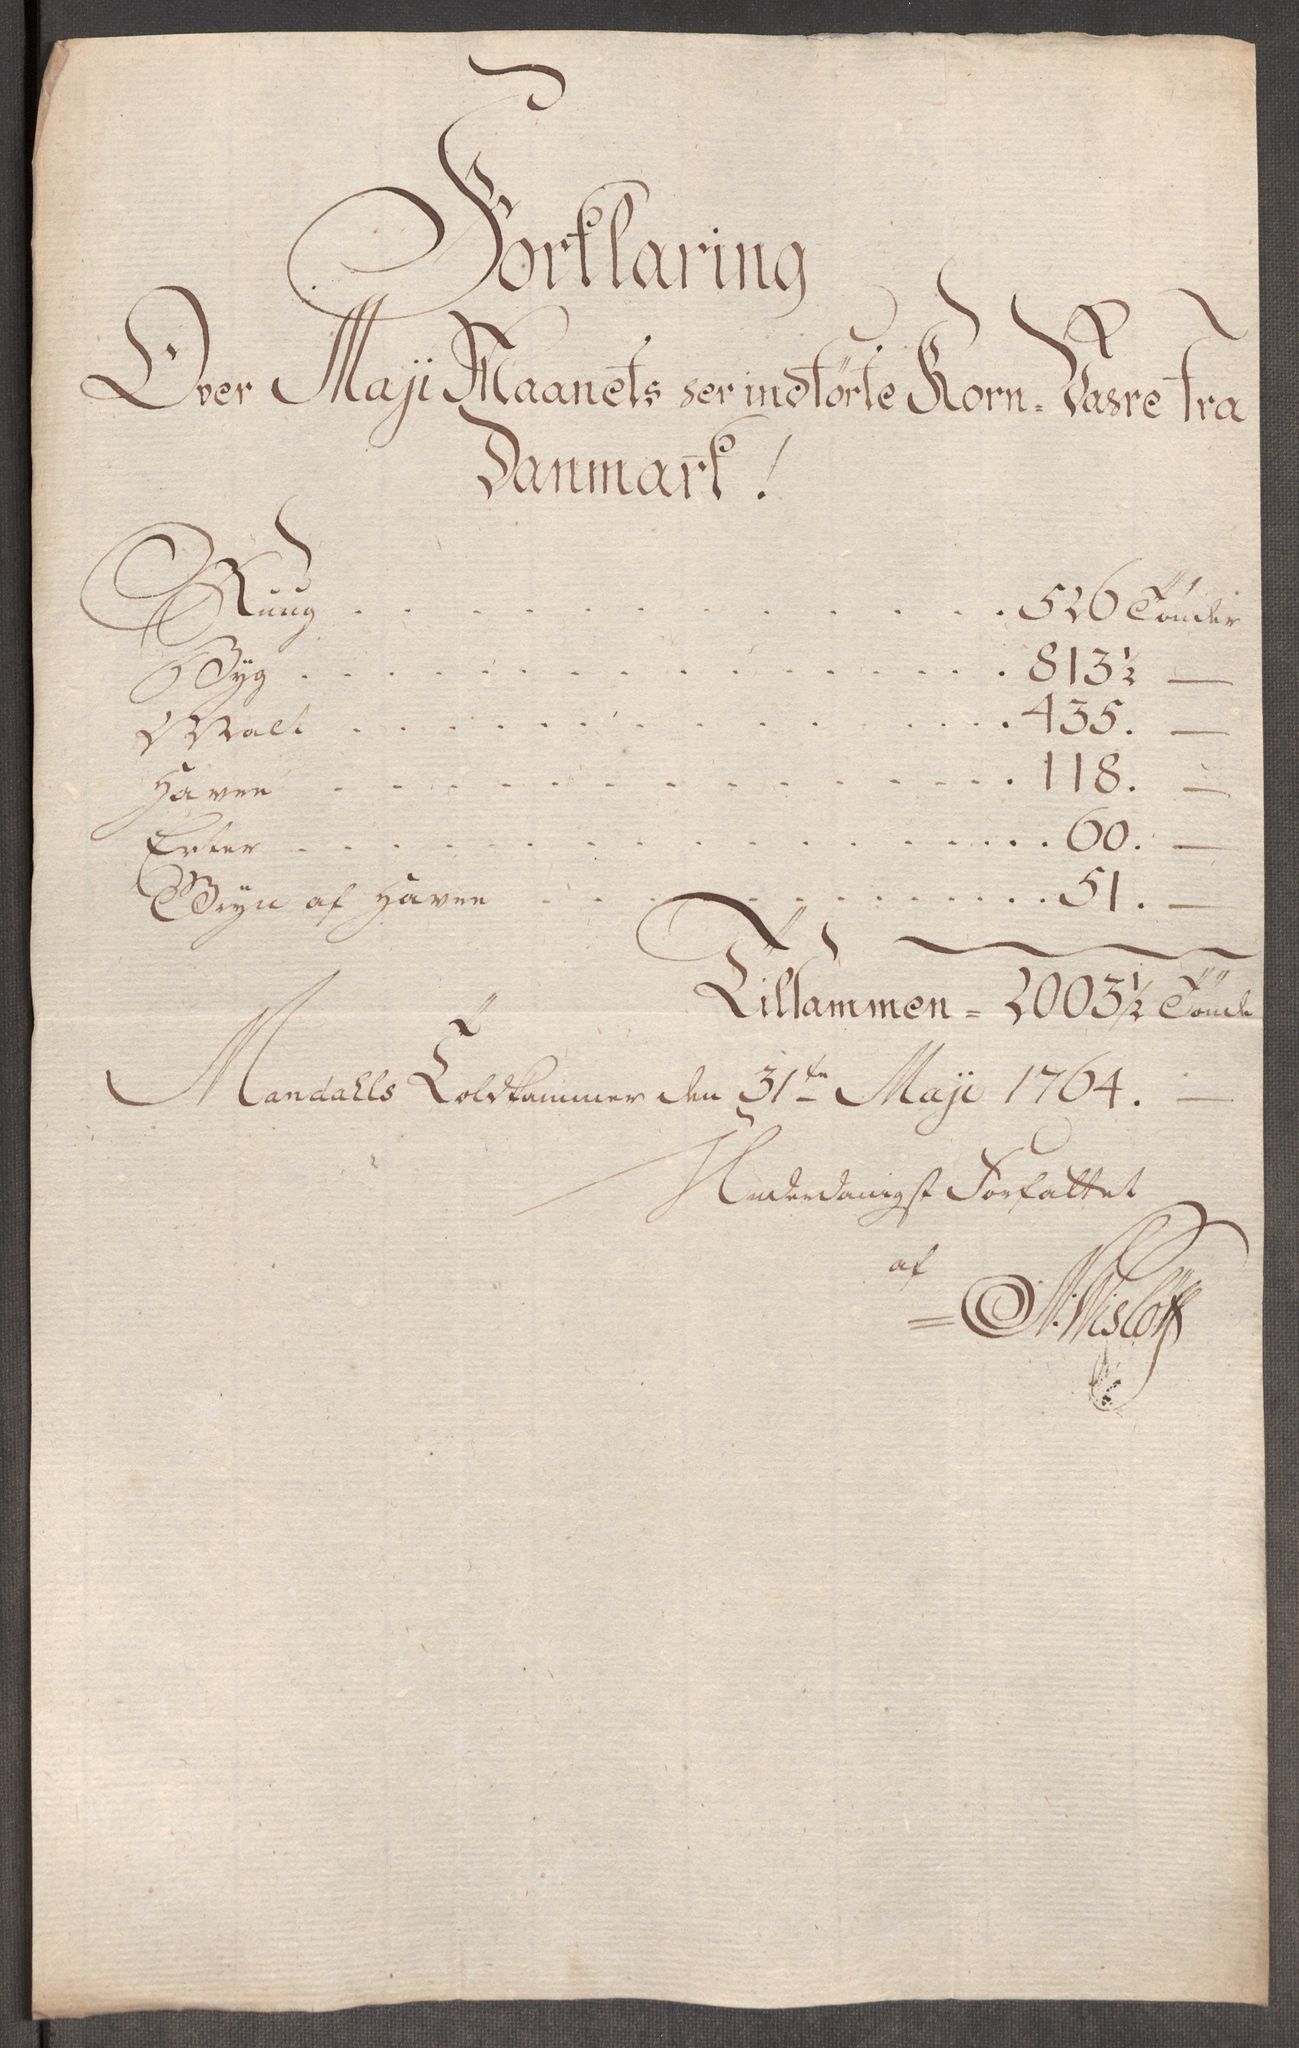 Forklaring
Over Maji Maaneds her indførte Korn-Vahre fra
Danmark!
Ruug . . . . . . . . . . . . . . . 526 Tönder
Byg . . . . . . . . . . . . . . . . 813 1/2 —
Malt . . . . . . . . . . . . . . . 435. —
Havre . . . . . . . . . . . . . . . 118. —
Erter . . . . . . . . . . . . . . . . 60. —
Gryn af Havre . . . . . . . . . . . 51. —
Tilsammen = 2003 1/2 Tönde
Mandahls Toldkammer den 31te Maji 1764. —
Underdanigst Forfattet
af